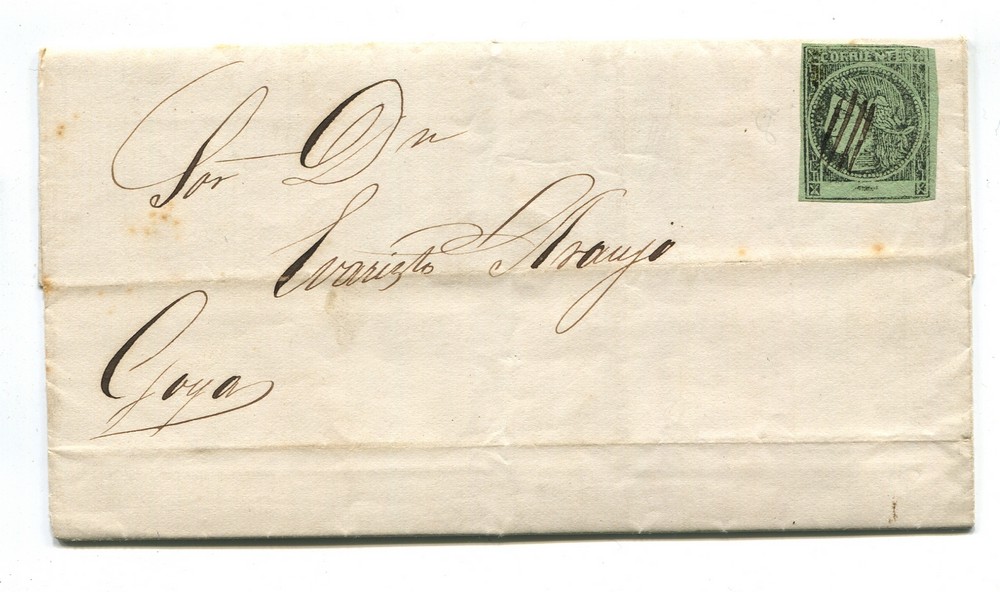 CORRIENTES
Sor. Dn
Evaristo Araujo
Goya